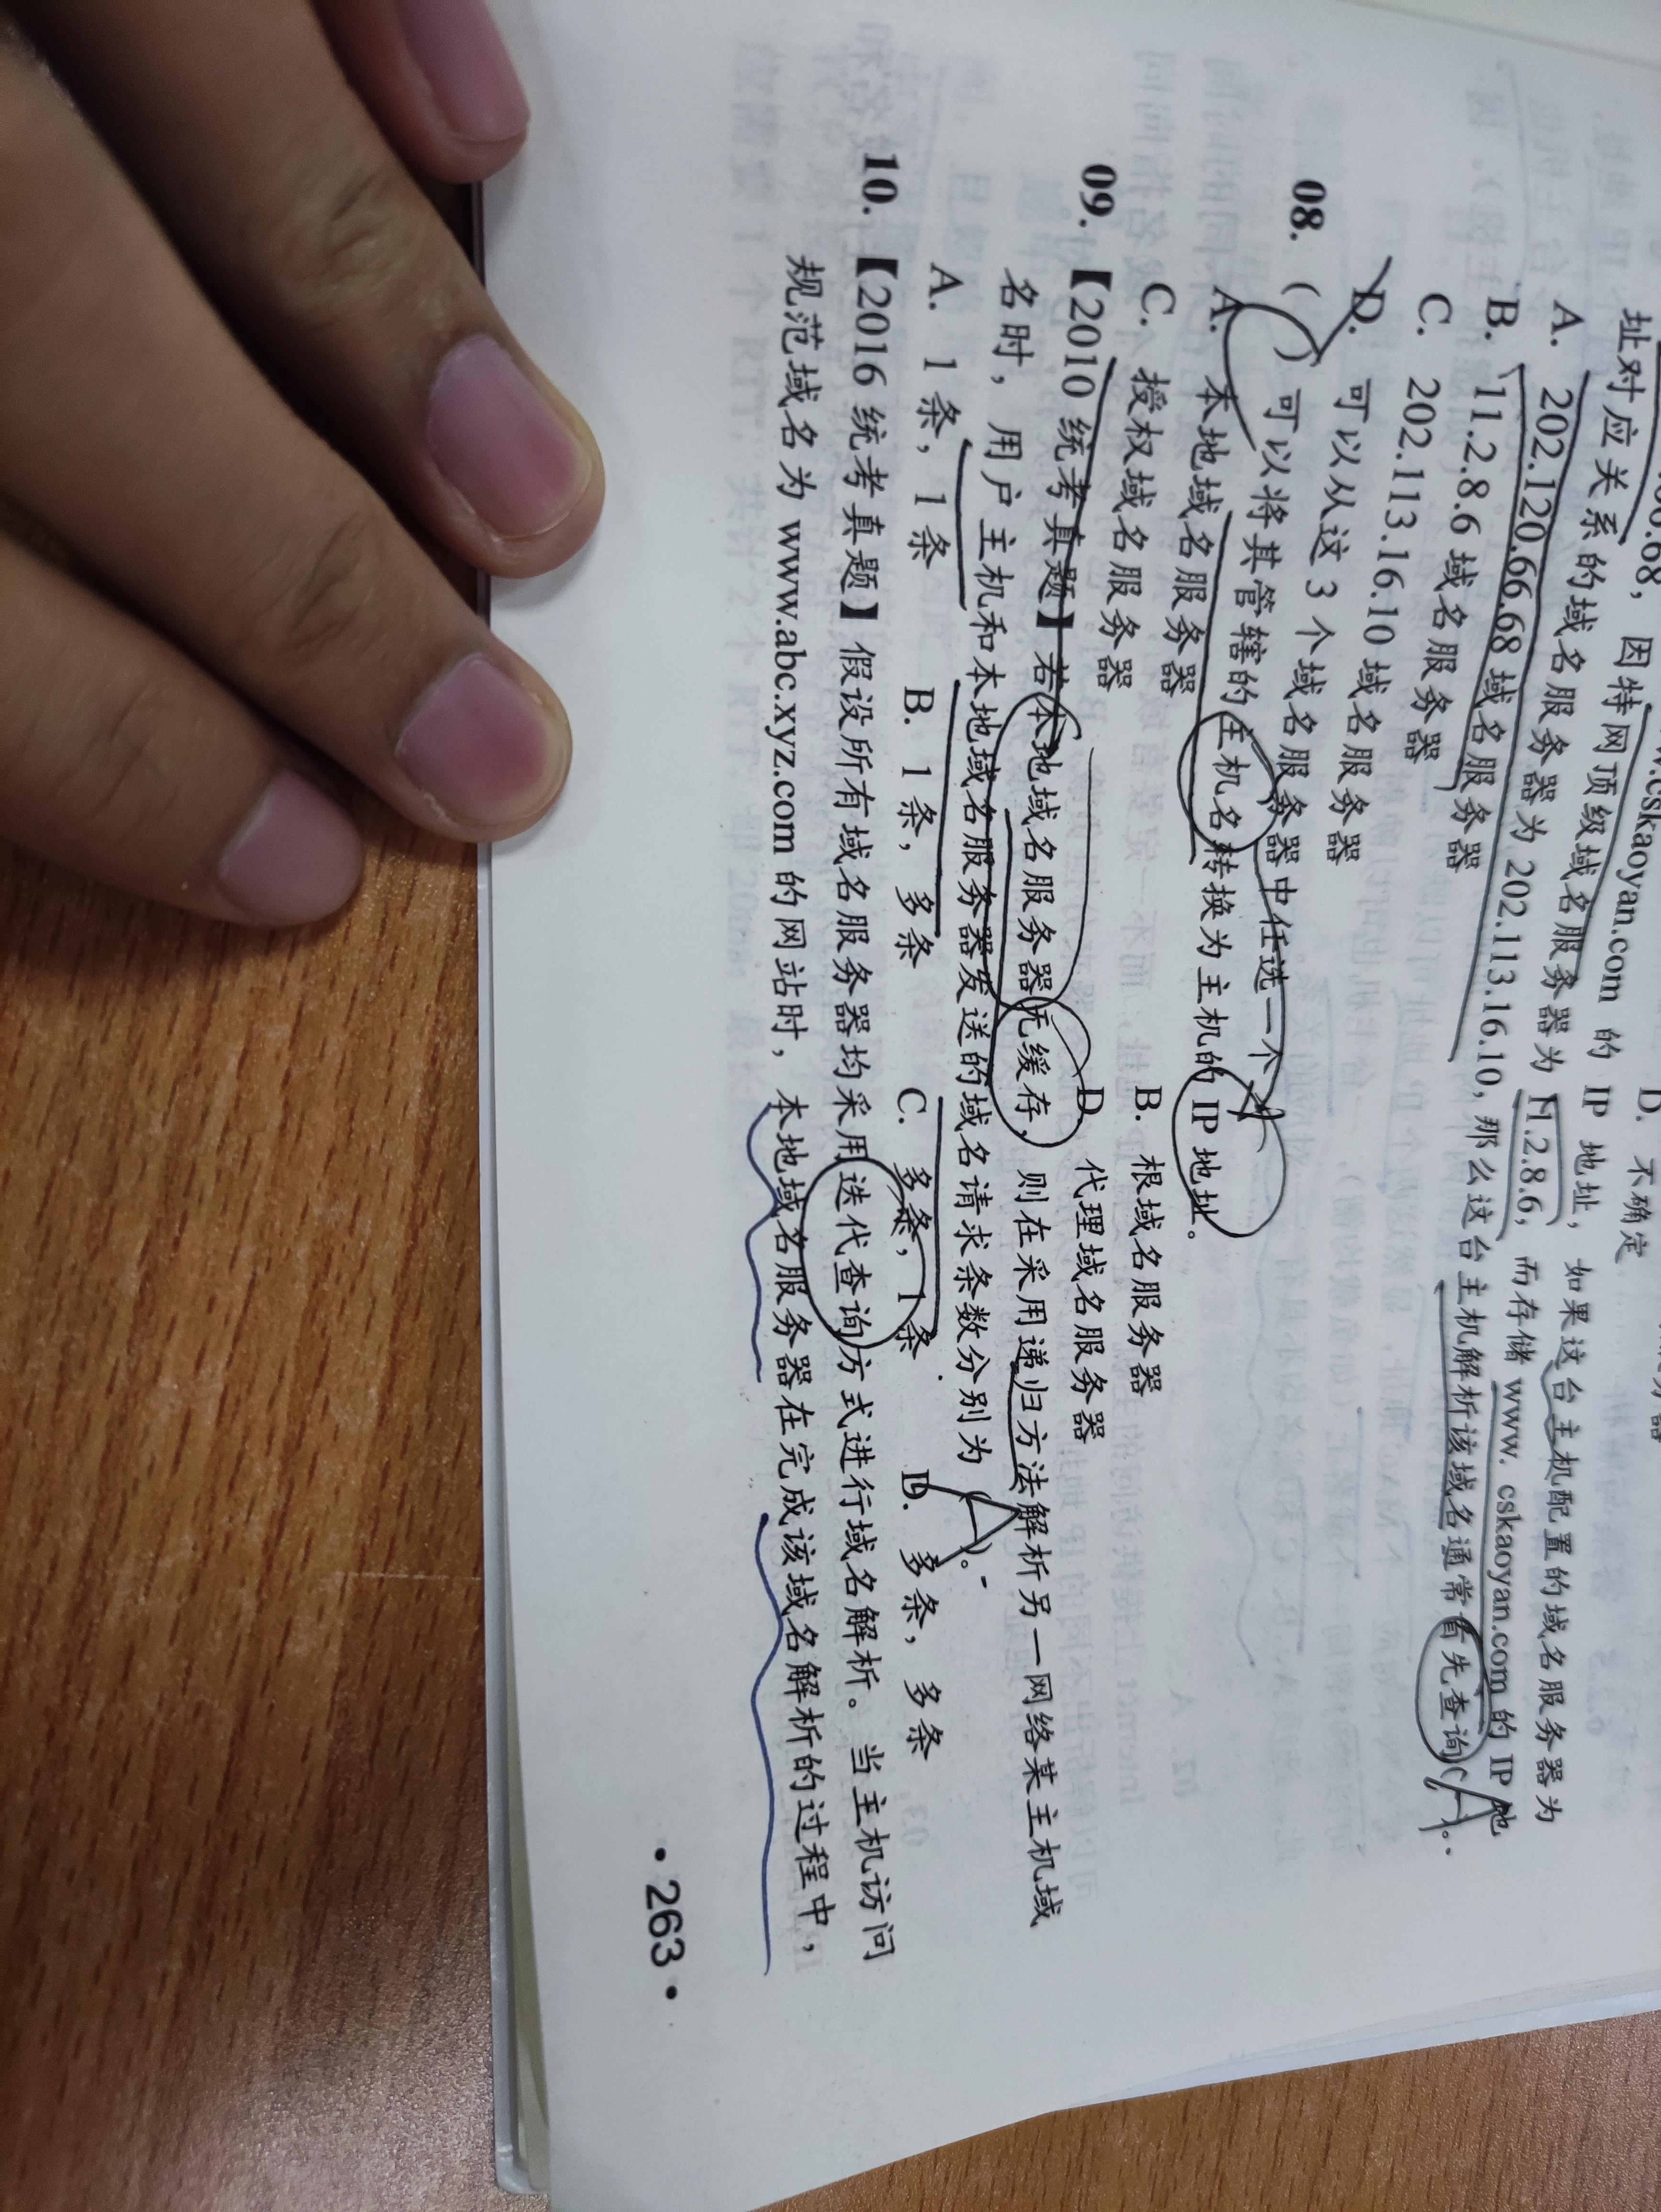 D. 不确定
w.cskaoyan.com 的 IP 地址，如果这台主机配置的域名服务器为
202.120.66.68，因特网顶级域名服务器为 11.2.8.6，而存储 www. cskaoyan.com 的 IP 地
址对应关系的域名服务器为 202.113.16.10，那么这台主机解析该域名通常首先查询( A )。
A. 202.120.66.68 域名服务器
B. 11.2.8.6 域名服务器
C. 202.113.16.10 域名服务器
D. 可以从这 3 个域名服务器中任选一个
08. ( ) 可以将其管辖的主机名转换为主机的 IP 地址。
A. 本地域名服务器 B. 根域名服务器
C. 授权域名服务器 D. 代理域名服务器
09. 【2010 统考真题】若本地域名服务器无缓存，则在采用递归方法解析另一网络某主机域
名时，用户主机和本地域名服务器发送的域名请求条数分别为 ( A )。
A. 1 条，1 条 B. 1 条，多条 C. 多条，1 条 D. 多条，多条
10. 【2016 统考真题】假设所有域名服务器均采用迭代查询方式进行域名解析。当主机访问
规范域名为 www.abc.xyz.com 的网站时，本地域名服务器在完成该域名解析的过程中，
• 263 •